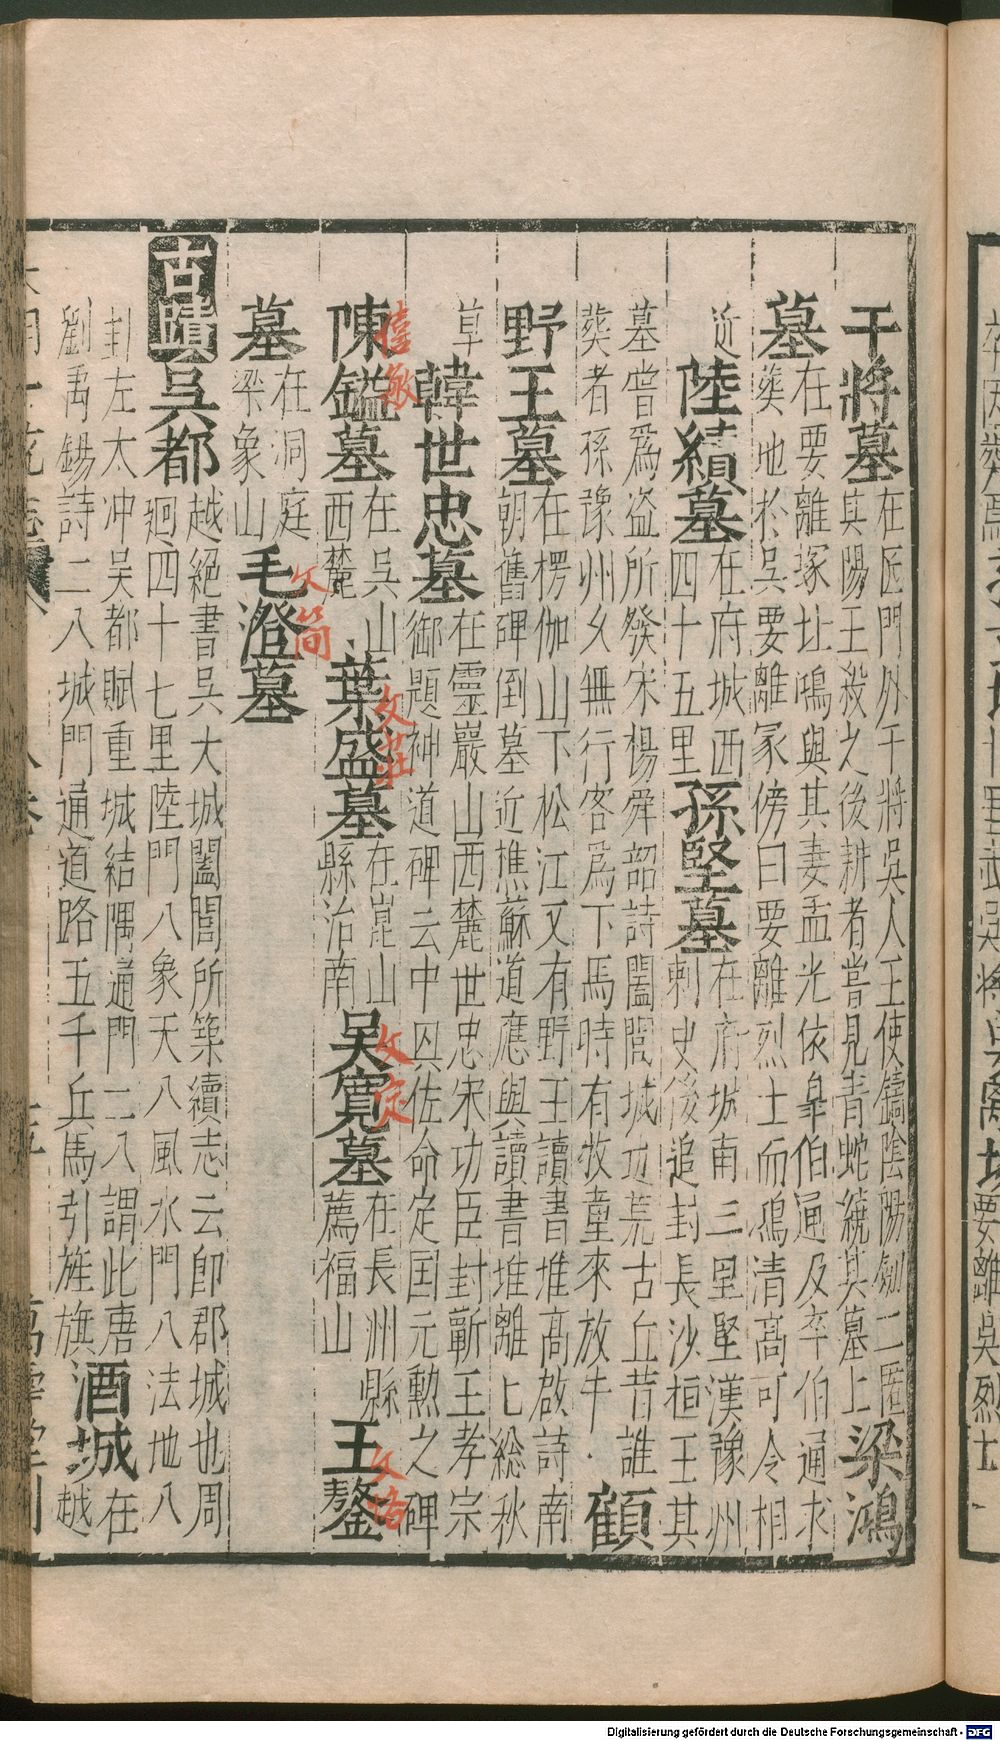 干將墓在匠門外干將吳人王使鑄陰陽劍二匿
其陽王殺之後耕者嘗見青蛇繞其墓上梁鴻
墓在要離塚址鴻與其妻孟光依皐伯通及卒伯通求
葬地於吳要離冢傍曰要離烈士而鴻清高可令相
近陸績墓在府城西四十五里孫堅墓在府城南三里堅漢豫州
刺史後追封長沙桓王其
墓嘗爲盜所發宋楊舜韶詩闔閭城邊荒古丘昔誰
葬者孫豫州久無行客爲下馬時有牧童來放牛顧
野王墓在楞伽山下松江又有野王讀書堆高啟詩南
朝舊碑倒墓近樵蘇道應與讀書堆離離總秋
草韓世忠墓在靈巖山西麓世忠宋功臣封蘄王孝宗
御題神道碑云中興佐命定国元勲之碑
陳鎰墓在吳山西麓葉盛墓在崑山縣治南吳寬墓在長洲縣薦福山王鏊
僖敏
文莊
文定
文恪
墓在洞庭梁象山毛澄墓
文簡
古蹟吳都越絕書吳大城闔閭所築續志云卽郡城也周
廻四十七里陸門八象天八風水門八法地八
封左太冲吳都賦重城結隅通門二八謂此唐
劉禹錫詩二八城門通道路五千兵馬引旌旗酒城在
越
Digitalisierung gefördert durch die Deutsche Forschungsgemeinschaft - DFG